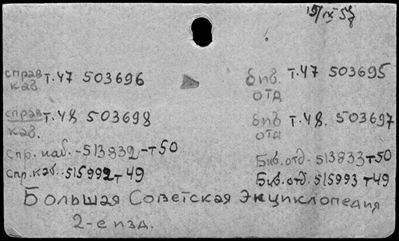 19/IX 57
справ каб т.47 503696 бив. отд т.47 503695
справ каб. т.48 503698 бив отд т.48. 503697
спр. каб. - 513832 - т50 Бив. отд. 513833 т50
спр. каб. - 515992 т49 Бив. отд. 515993 т49
Большая Советская Энциклопедия
2-е изд.